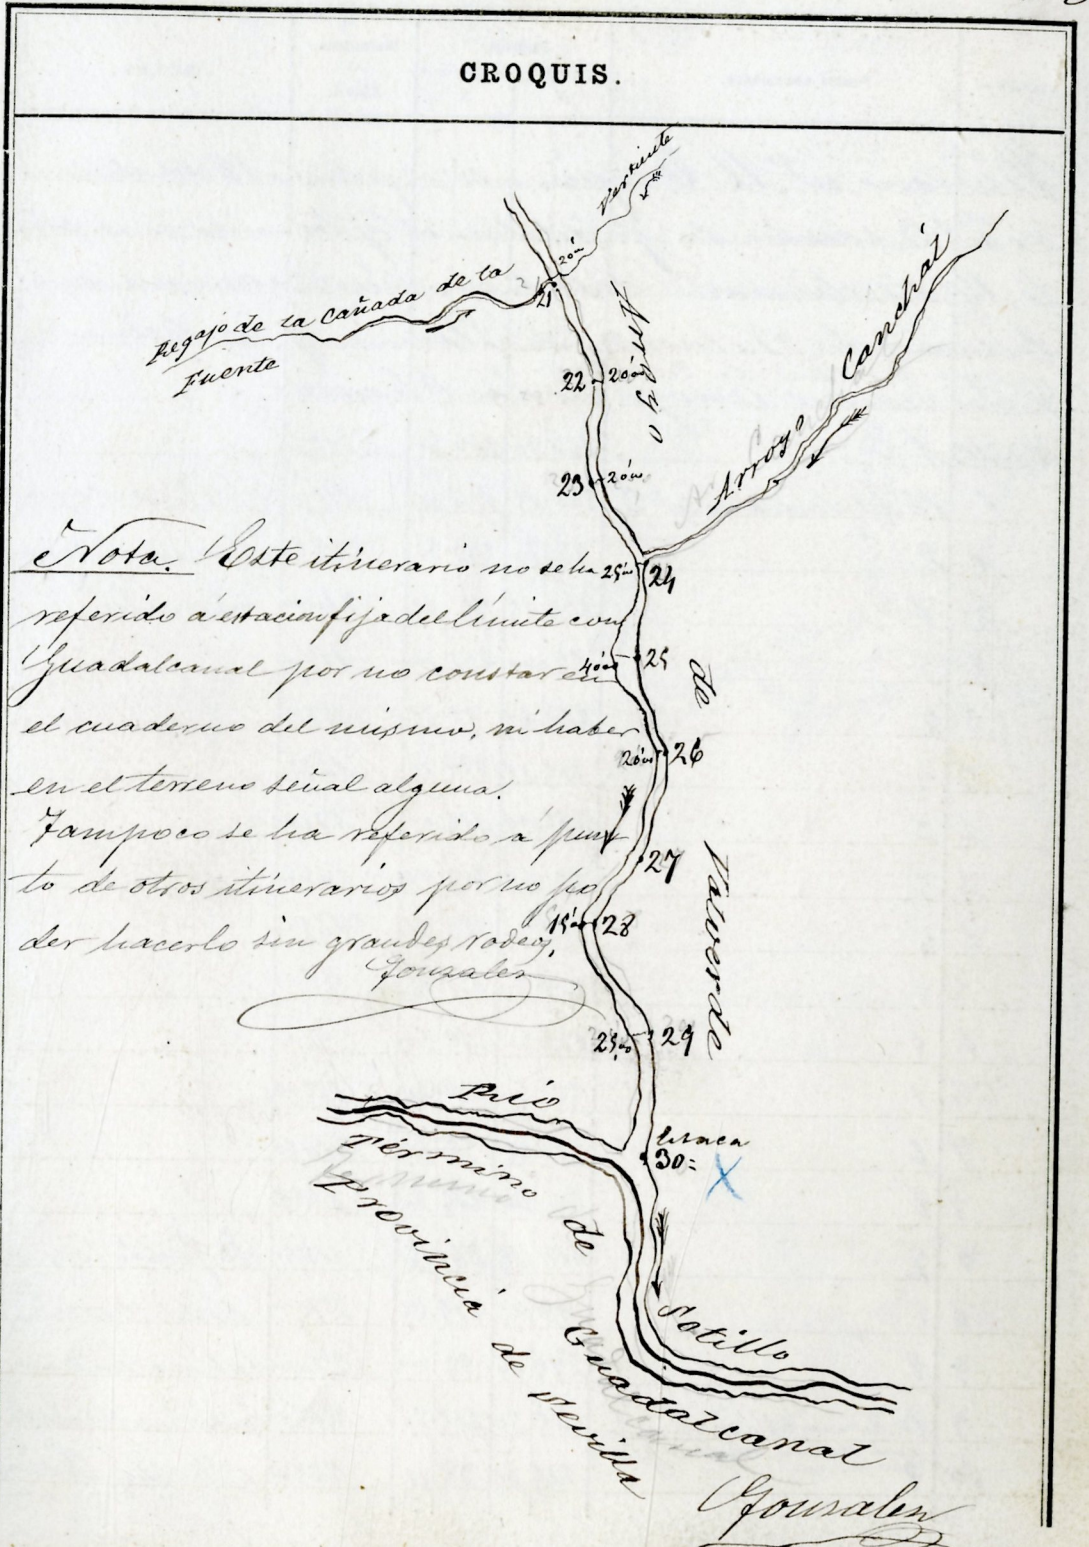 CROQUIS.
Vertiente
20m
21
Regajo de la Cañada de la
Fuente
22 20m
Arroyo
Arroyo Canchál
23 20m
Nota. Este itinerario no se ha
referido á estacion fija del límite con
Guadalcanal por no constar en
el cuaderno del mismo, ni haber
en el terreno señal alguna.
Tampoco se ha referido á pun
to de otros itinerarios por no po
der hacerlo sin grandes rodeos.
Gonzalez
25m 24
40m 25
de
20m 26
27
Valverde
15m 28
25m 29
Río
30=
X
Término de Guadalcanal
Provincia de Sevilla
Sotillo
Gonzalez